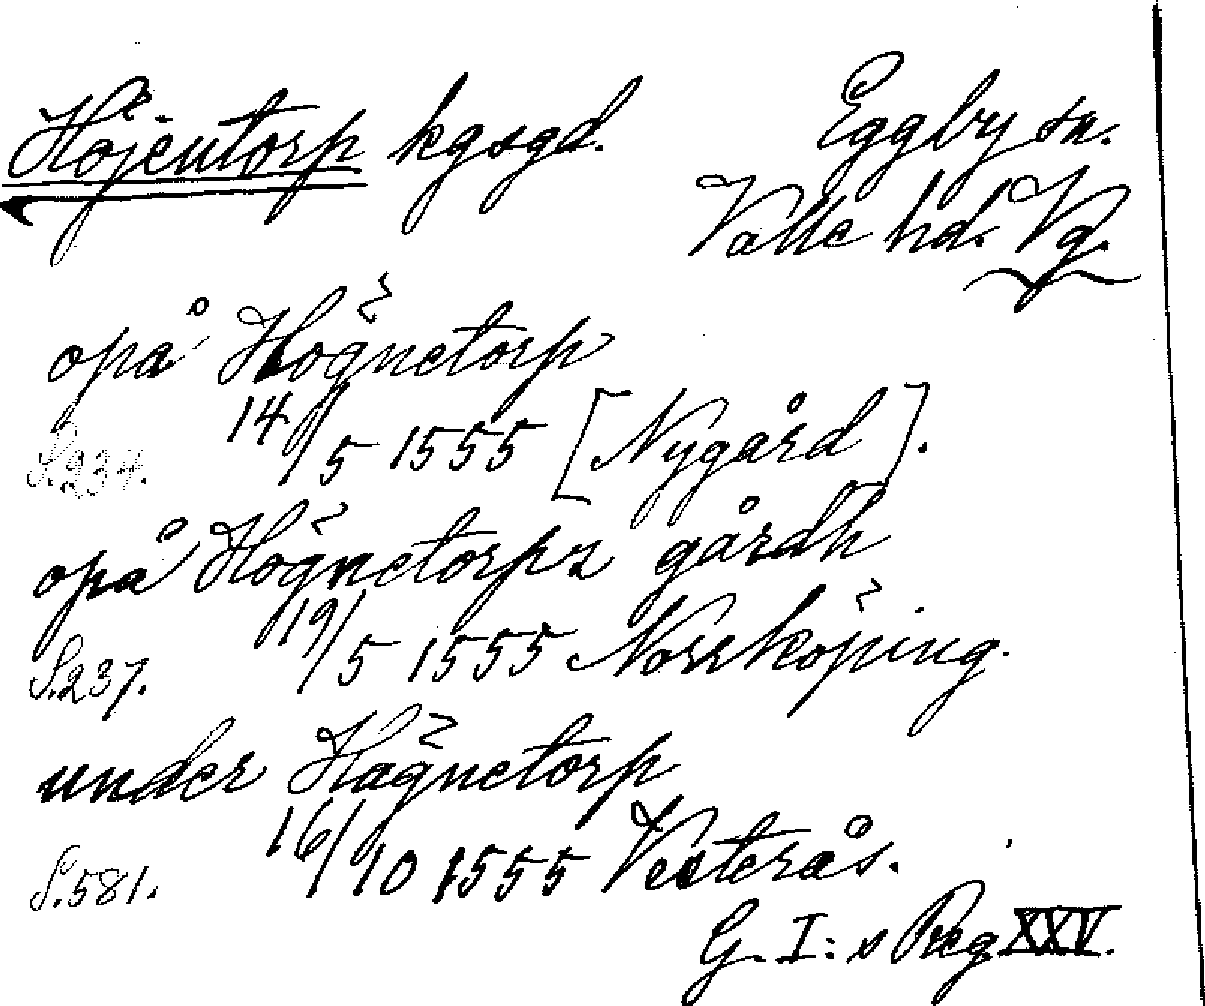 Höjentorp kgsgd. Eggby sn.
Valle hd. Vg.
opå Högnetorp
S.234. 14/5 1555 [Nygård].
opå Högnetorps gårdh
S.237. 19/5 1555 Norrköping.
under Hägnetorp
S.581. 16/10 1555 Vesterås.
G. I:s Reg XXV.